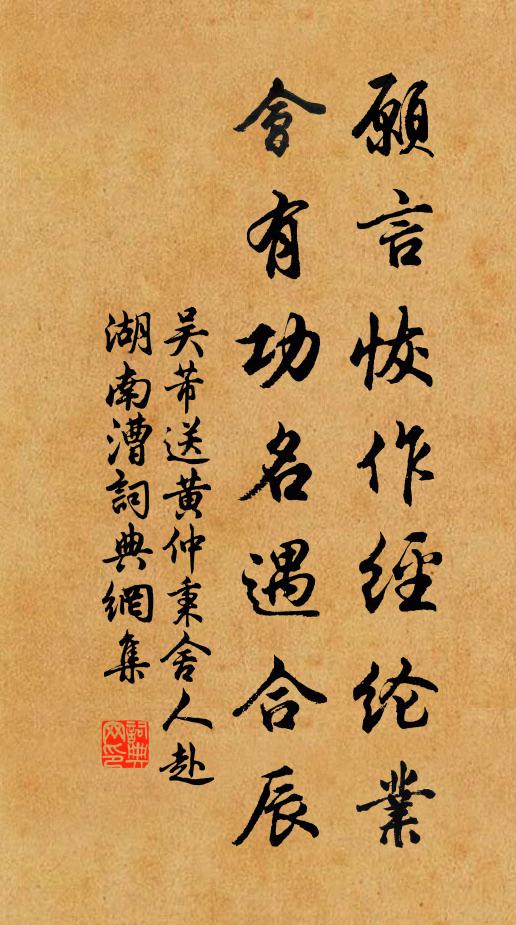 願言恢作經纶業
會有功名遇合辰
吴芾送黄仲秉舍人赴
湖南漕詞典網集
詞典
网印